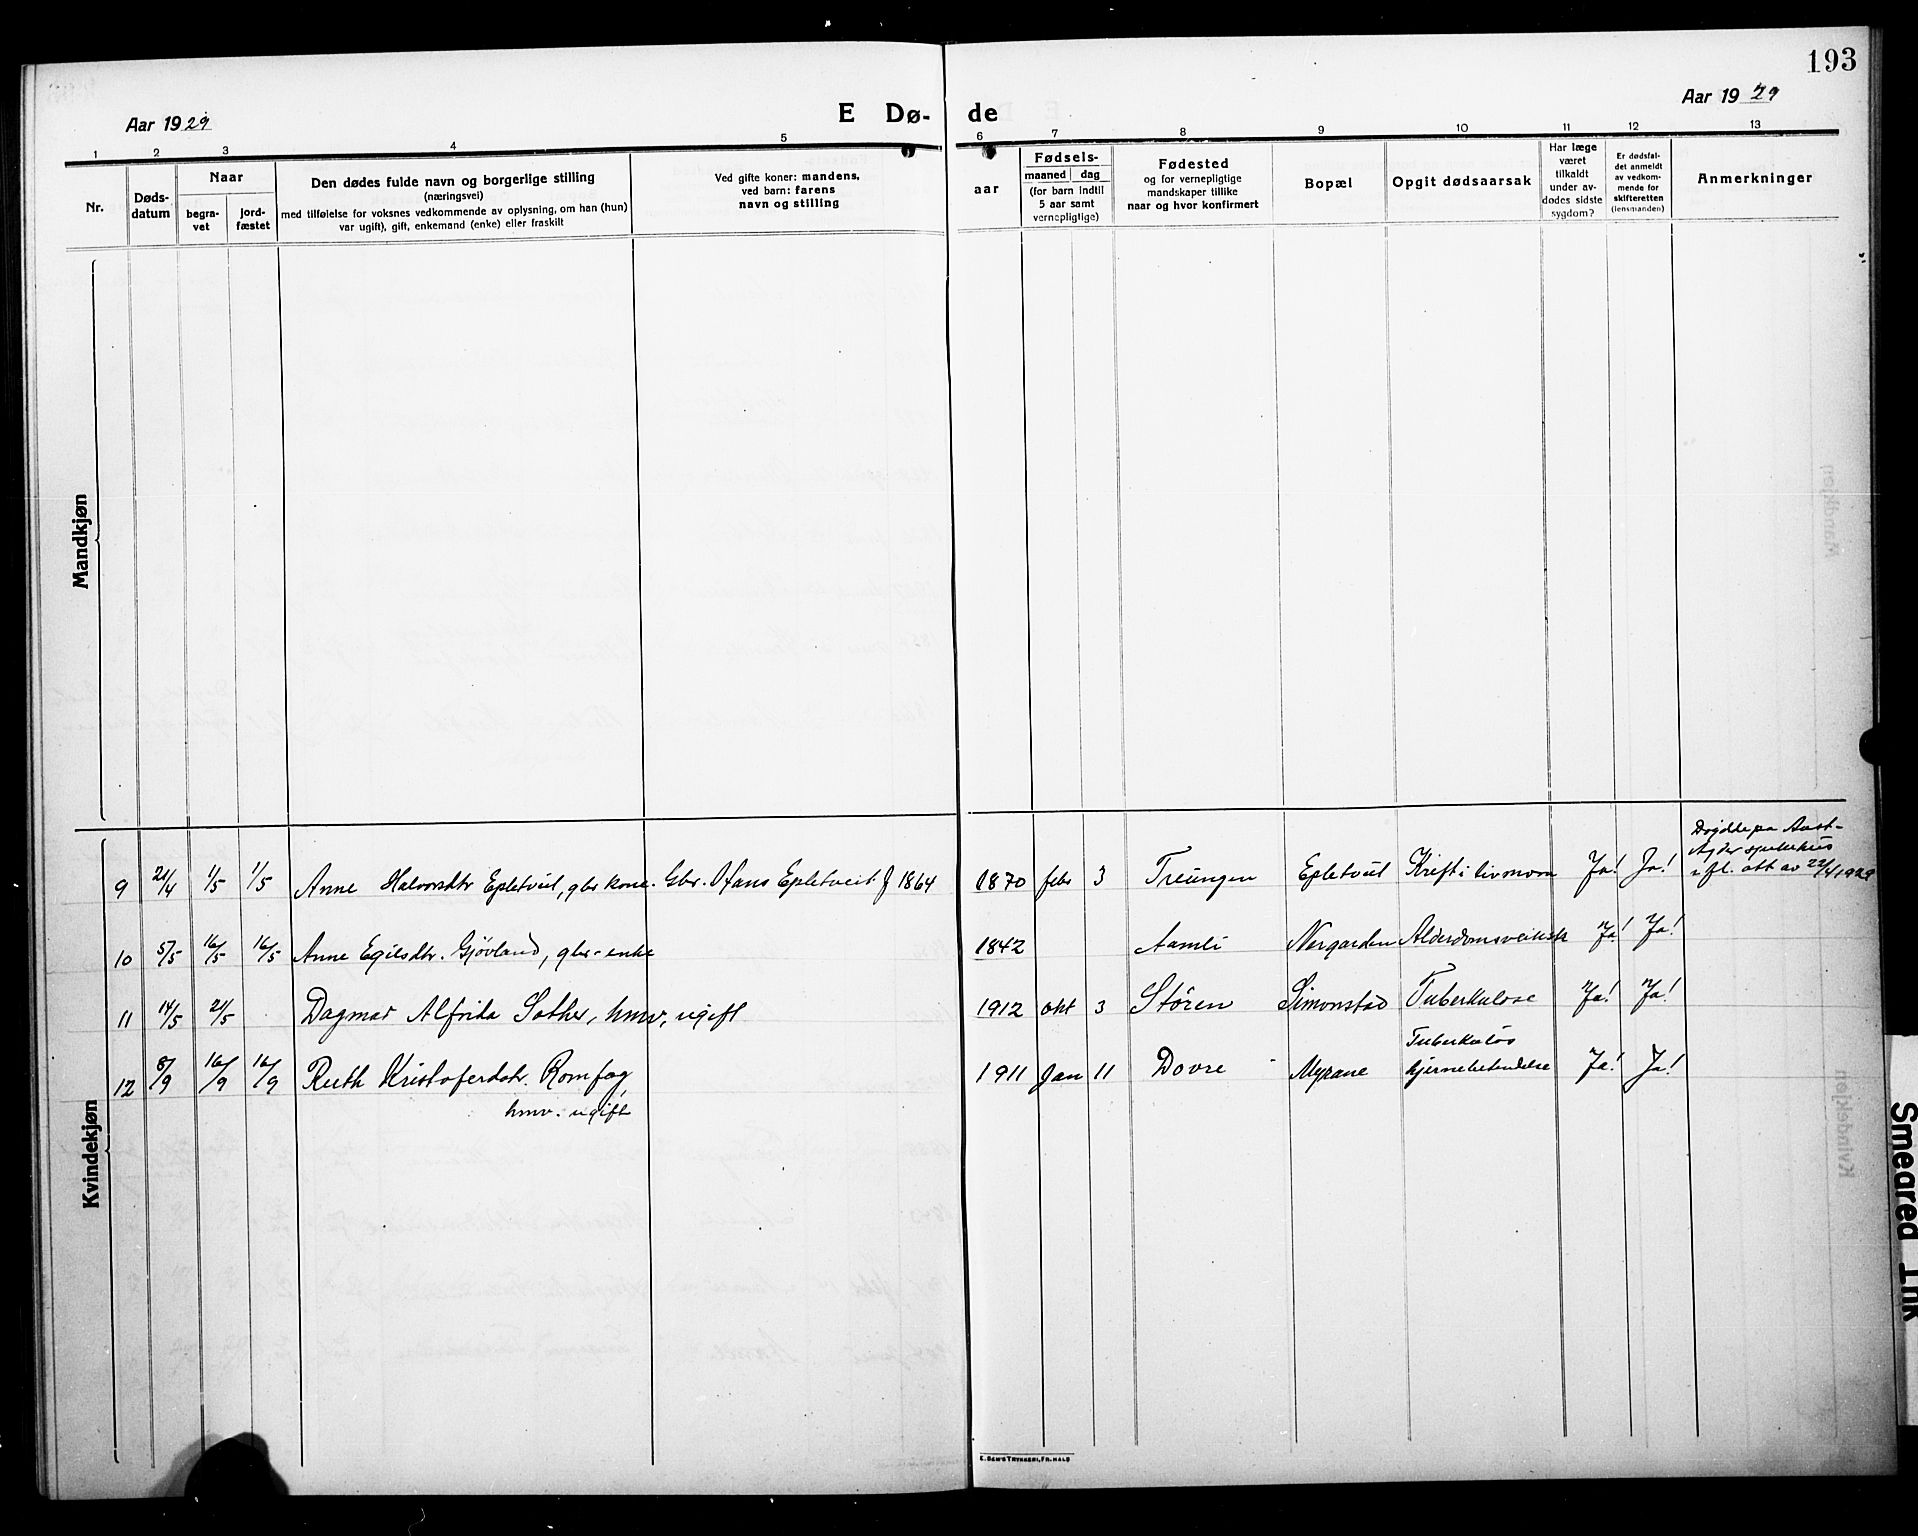 193
Aar 1929
E Dø-
de
Aar 1929
1 2 3 4 5 6 7 8 9 10 11 12 13
Nr.
Døds-
datum
Naar
begra-
vet
jord-
fæstet
Den dødes fulde navn og borgerlige stilling
(næringsvei)
med tilføielse for voksnes vedkommende av oplysning, om han (hun)
var ugift), gift, enkemand (enke) eller fraskilt
Ved gifte koner: mandens,
ved barn: farens
navn og stilling
aar
Fødsels-
maaned dag
(for barn indtil
5 aar samt
vernepligtige)
Fødested
og for vernepligtige
mandskaper tillike
naar og hvor konfirmert
Bopæl
Opgit dødsaarsak
Har læge
været
tilkaldt
under av-
dødes sidste
sygdom?
Er dødsfal-
det anmeldt
av vedkom-
mende for
skifteretten
(lensmanden)
Anmerkninger
Mandkjøn
Kvindekjøn
9 21/4 1/5 1/5 Anne Halvorsdtr Epletveit, gbr kone. Gbr. Hans Epletveit f 1864 1870 febr 3 Treungen Epletveit Kreft i livmora Ja! Ja!
Døydde på Aust-
Agder sjukehus
i fl. att av 22/4 1929
10 5/5 16/5 16/5 Anne Egilsdtr. Gjövland, gbr-enke 1842 Aamli Nergarden Alderdomsveiksk Ja! Ja!
11 14/5 21/5 Dagmar Alfrida Sather, hmv, ugift 1912 okt 3 Stören Simonstad Tuberkulose Ja! Ja!
12 8/9 16/9 16/9 Ruth Kristofersdtr. Romfog, 1911 Jan 11 Dovre Myrane Tuberkuløs
hjernebetendelse Ja! Ja!
hmv. ugift
E. SEM'S TRYKKERI, FR.HALD
Smeared Ink